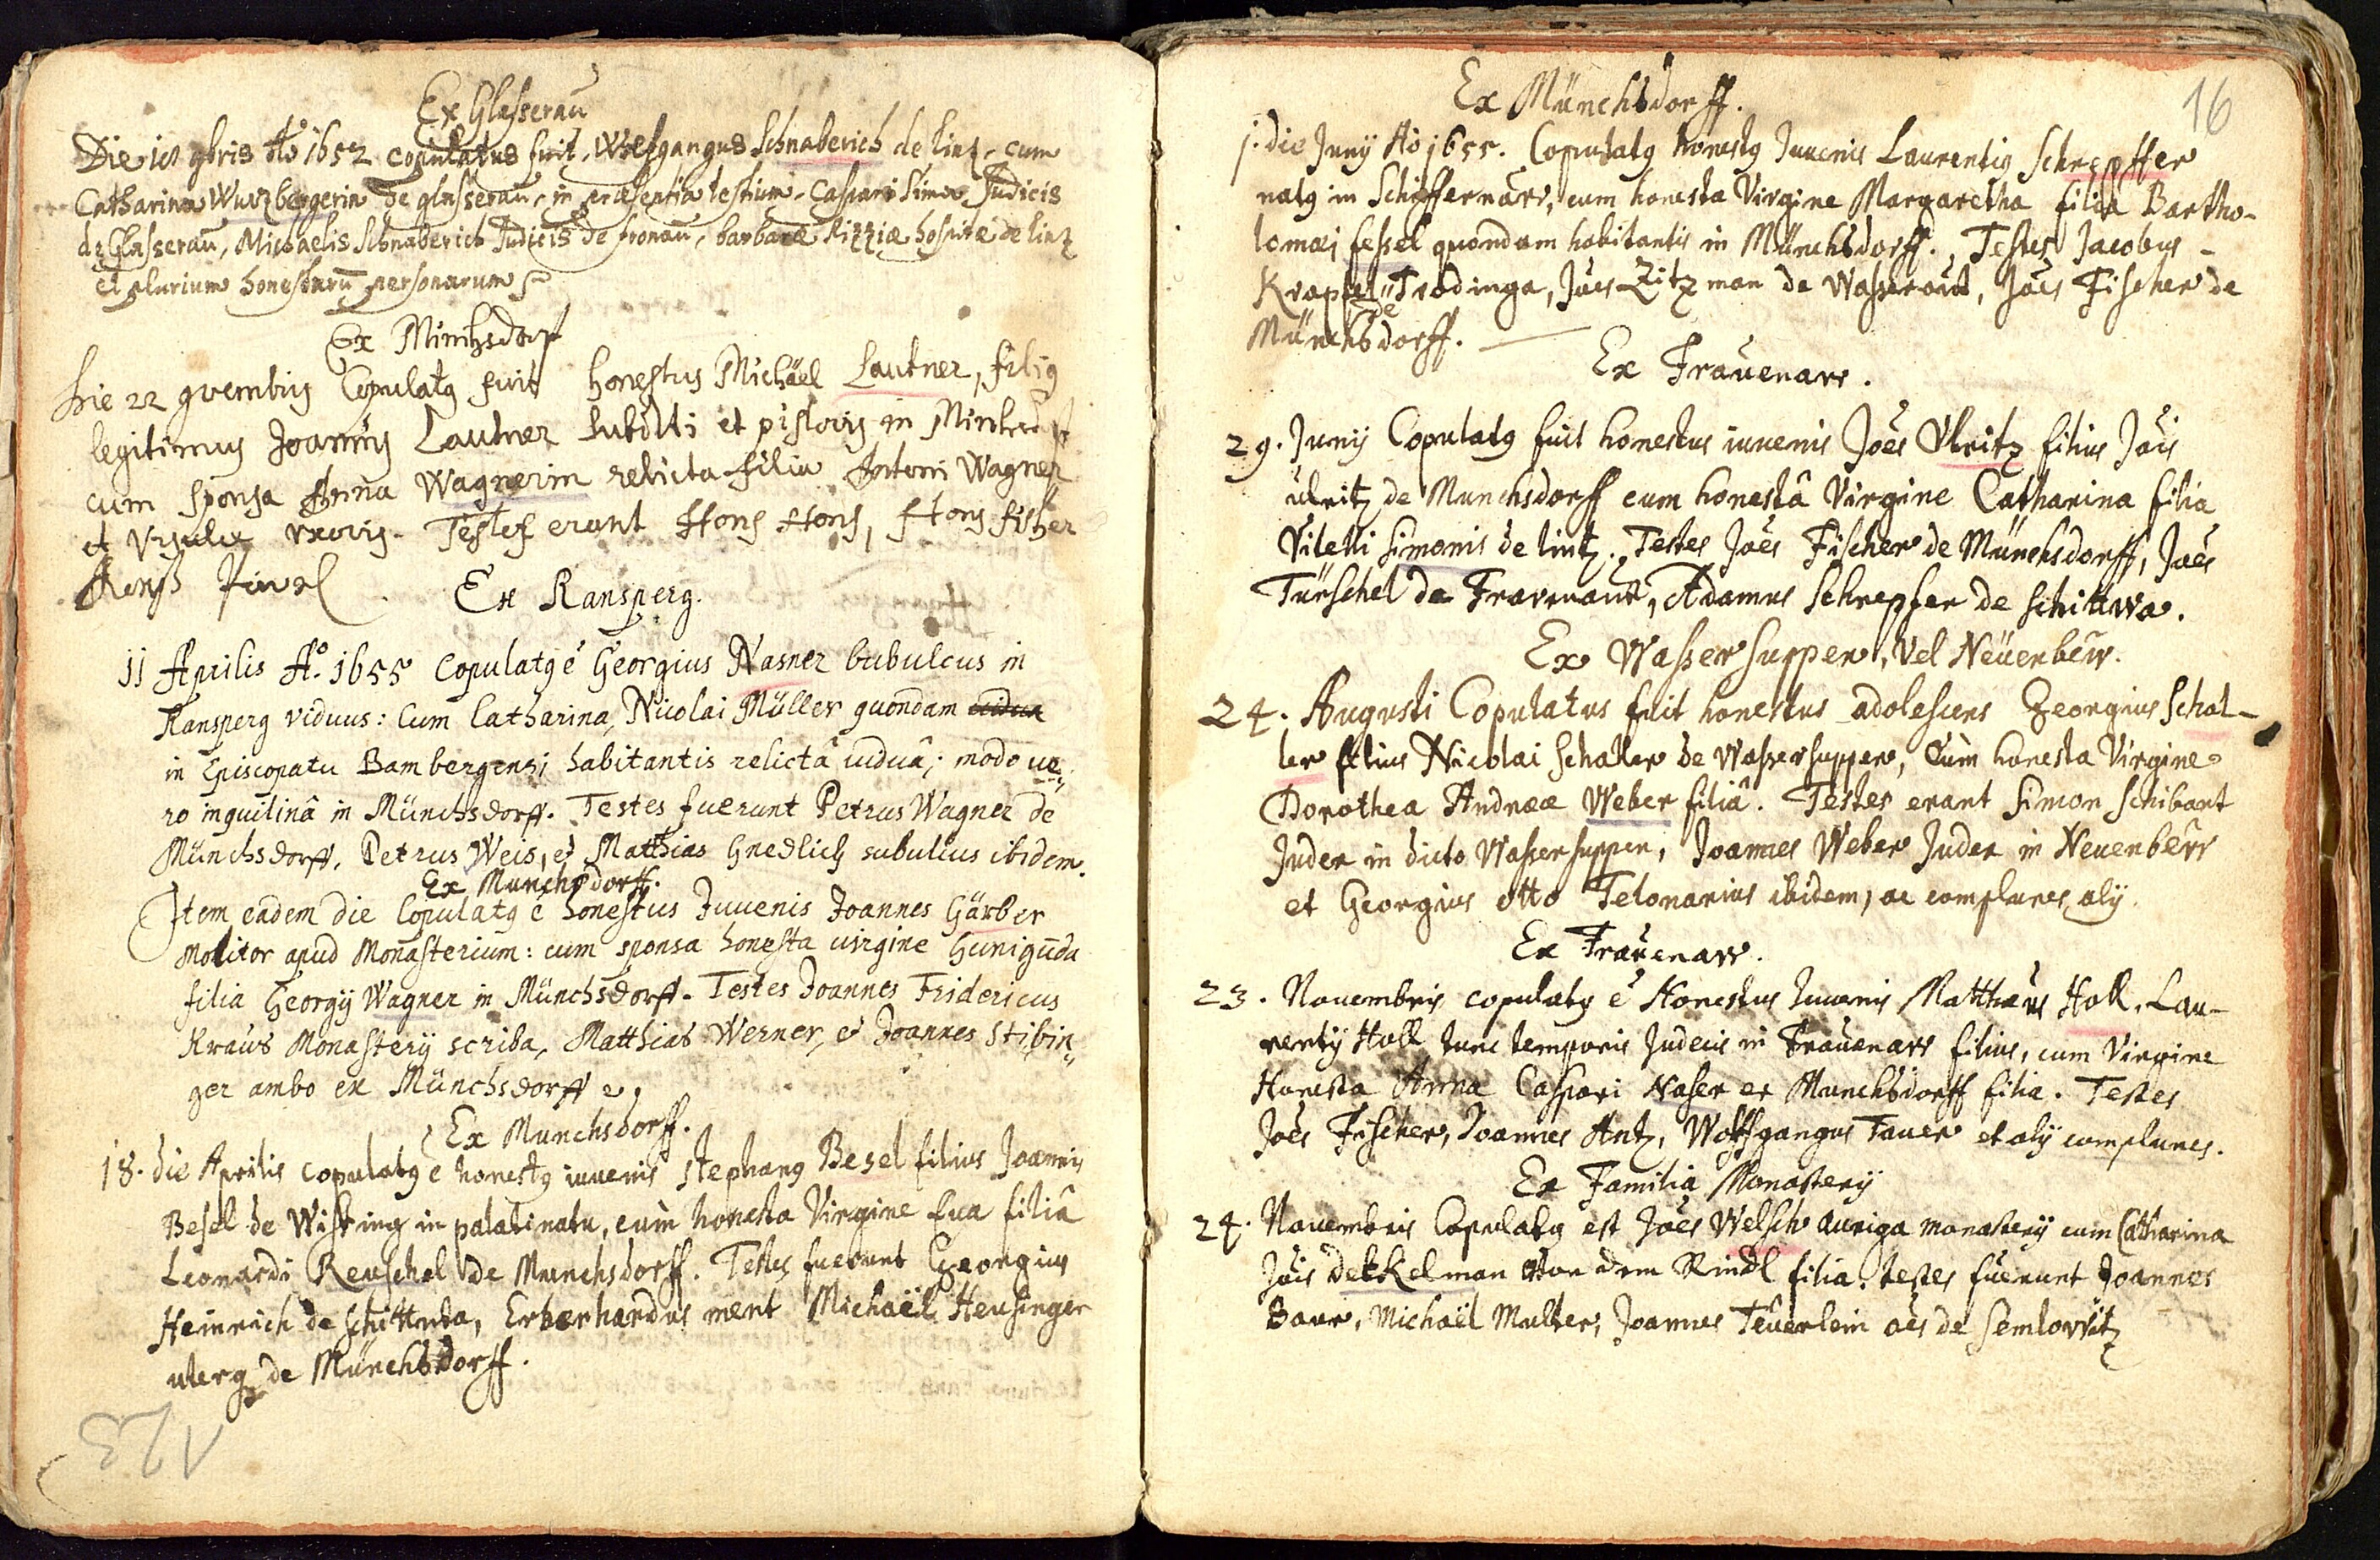 Ex Glasserau
Die 10 9bris Ao 1652 copulatus fuit, Wolfgangus Schnaberich de linz, cum
Catharina Wurzbergerin de glasserau, in praesentia testium, Caspari Simon Judicis
de Glasserau, Michaelis Schnaberich Judicis de fronau, barbarae hospitae de linz
et plurium honestarū personarum
Ex Minihsdorf
Die 22 9vembris Copulatg fuit honestus Michäel Lautner, filig
legitimus Joannis Lautner subditi et pistoris in
cum sponsa Anna Wagnerin relicta filia Antoni Wagner
et Vrsulae vxoris. Testes erant Hons Hons, Hons fisher
Ex Ransperg.
11 Aprilis Aº. 1655 Copulatg é Georgius Nasner bubulcus in
Ransperg viduus: Cum Catharina, Nicolai Müller quondam vidua
in Episcopatu Bambergensi habitantis relictâ viduâ; modo ue„
ro inquilinâ in Münchsdorff. Testes fuerunt Petrus Wagner de
Münchsdorff, Petrus Weis, et Matthias Gnedlich subulcus ibidem.
Ex Munchsdorff.
Item eadem die Copulatg é honestus Juuenis Joannes Gärber
Molitor apud Monasterium: cum sponsa honesta uirgine Gunigūda
filia Georgij Wagner in Münchsdorff. Testes Joannes Fridericus
Kraus Monasterij scriba, Matthias Werner, et Joannes Stibin„
ger ambo ex Münchsdorff
Ex Munchsdorff.
18. die Aprilis copulatg é honestg iuuenis stephang Besel filius Joannis
Besel de in palatinatu, cum honesta Virgine Eua filiâ
Leonardi Reuschel de Munchsdorff. Testes fuerunt Georgius
Heinrich de Erberhardus ment Michaël Heusinger
uterg de Münchsdorff.
123
16
Ex Münchsdorff.
1. die Junij Ao 1655. Copulatg honestg Juuenis Laurentig Schrepffer
natg in Schiffernaw, cum honesta Virgine Margaretha filia Bartho-
lomæi fessel quondam habitantis in Münchsdorff. Testes Jacobus
Krapfel de Trodinga, Joes Zitzman de Joës Fischer de
Münchsdorff.
Ex Frauenaw.
29. Junij Copulatg fuit honestus iuuenis Joës Vlritz filius Jois
ulritz de Munchsdorff cum honestâ Virgine Catharina filia
Vitelli Simonis de lintz. Testes Joës Fischer de Münchsdorff, Joës
Türschel de Adamus Schrepfer de
Ex Wassersuppen, Vel Neüenberr.
24. Augusti Copulatus fuit honestus adolescens Georgius Schal-
ler filius Nicolai Schaller de Wassersuppen, Cum honesta Virgine
Dorothea Andreæ Weber filiâ. Testes erant Simon Schibant
Judex in dicto Wassersuppen, Joannes Weber Judex in Neuenberr
et Georgius Otto Telonarius ibidem, ac complures alij.
Ex Frauenaw.
23. Nouembris copulatg é Honestus Juuenis Matthæus Holl. Lau-
rentij Holl tunc temporis Judicis in Frauenaw filius, cum Virgine
Honesta Anna Caspari Naser ex Munchsdorff filia. Testes
Joës Fischer, Joannes Antz, Wolffgangus Tauer et alij complures.
Ex Familia Monasterij
24. Nouembris Copulatg est Joës Welsch auriga monasterij cum Catharina
Jois Dekkelman Von dem Rindl filia. testes fuerunt Joannes
Baur, Michaël Multer, Joannes Teuerlein oës de semlowitz